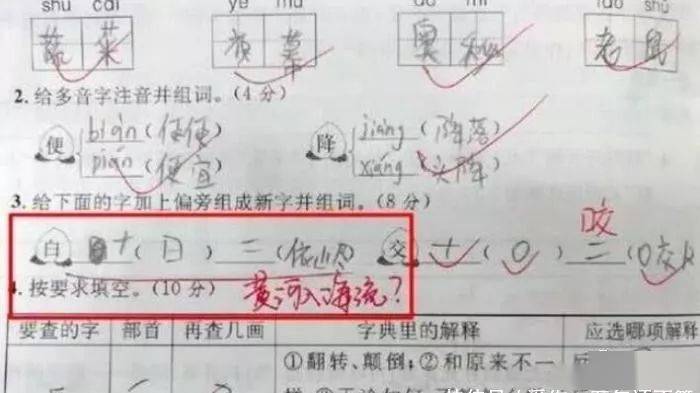 shu cai ye mu ao mi lao shǔ
蔬菜 奥秘 老鼠
2.给多音字注音并组词。(4 分)
便 biàn (便便) 降 jiàng (降落)
pián (便宜) xiáng (头降)
3.给下面的字加上偏旁组成新字并组词。(8 分)
咬
白 + (日) = (依山尽) 交 + (口) = (咬
黄河入海流?
4.按要求填空。(10 分)
要查的字 部首 再查几画 字典里的解释 应选哪项解释
①翻转、颠倒;②和原来不一 反